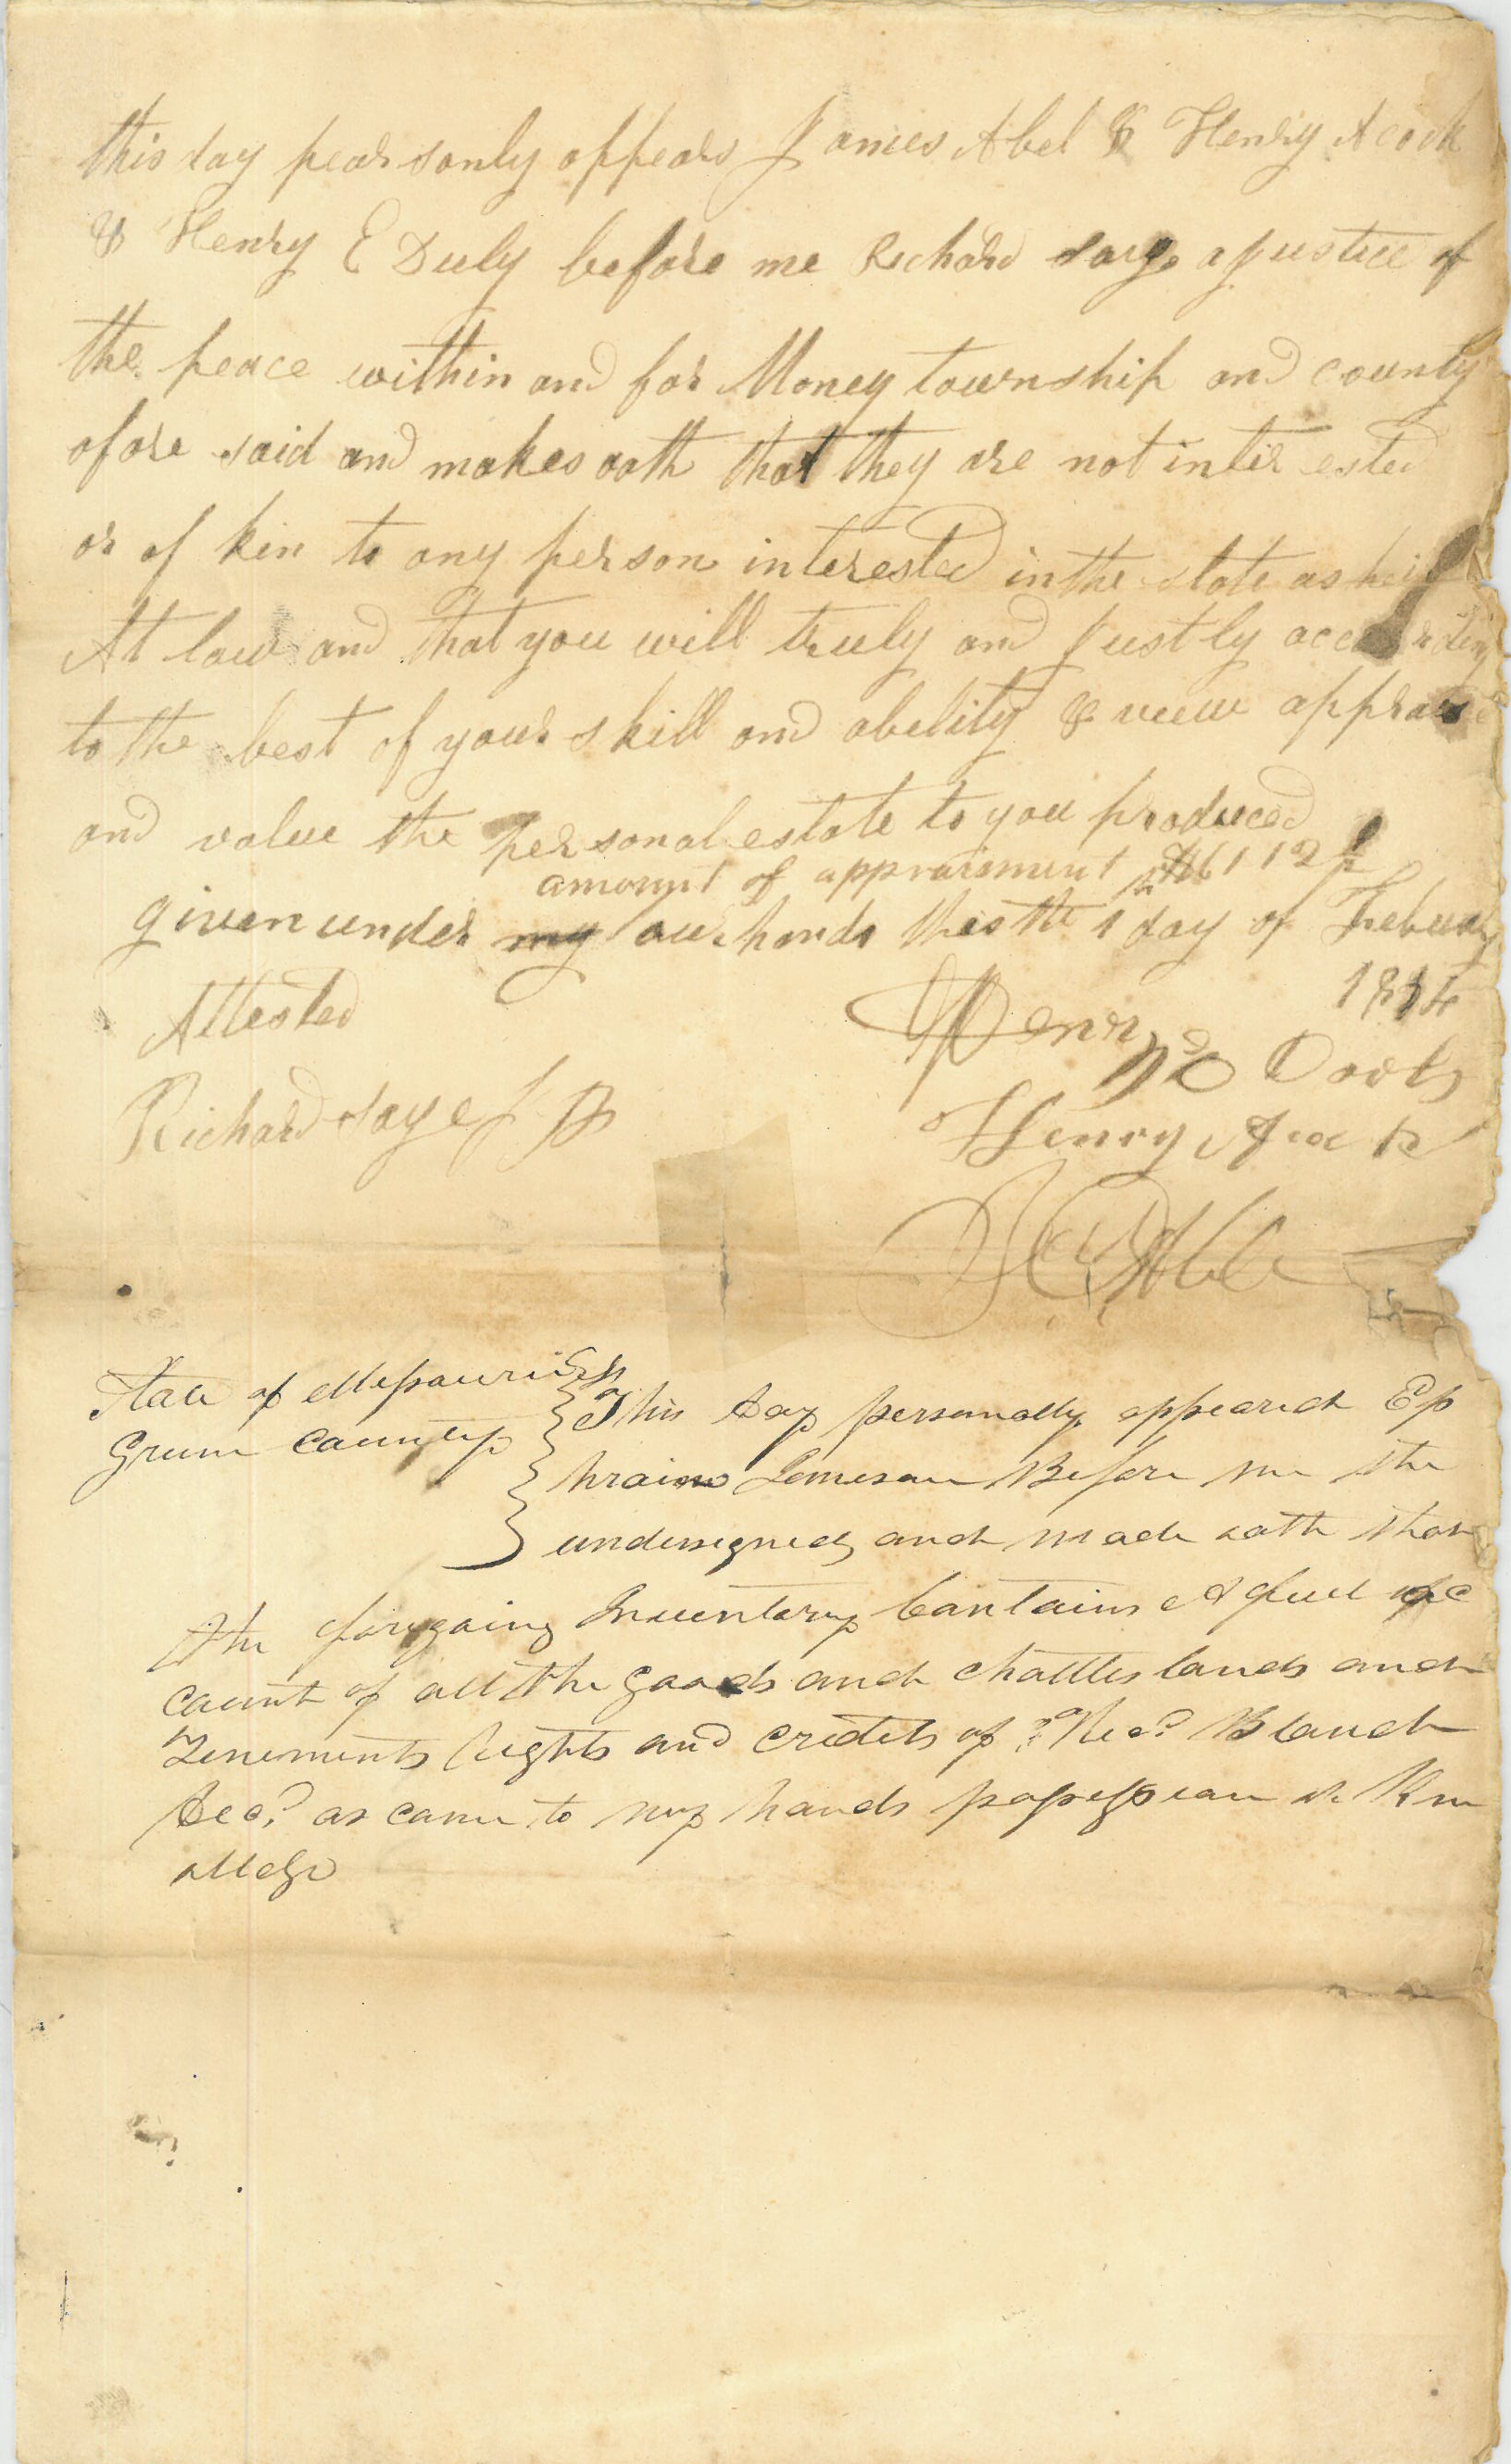 this day pearsonly appears James Abel & Henry Acock
& Henry E Duly before me Richard Saye a justice of
the peace within and for Money township and county
afore said and makes oath that they are not inter ested
or of kin to any person interested in the state as heir
At law and that you will truly and justly according
to the best of your skill and abelity & veew appraise
and value the personal estate to you produced
amount of appraisment
given under my our hands this the 1 day of Febuary
1834
Attested
Henry
Richard Saye J P
Henry
State of Missouri
This day personally appeared Ep
Green County
hraim Jameson Before me the
undersigned and made oath that
the forgoing Inventory Contains A full ac
count of all the goods and chattles lands and
Tenements Rights and credits of Blanch
Decd as came to my hands possession or Kno
alledge